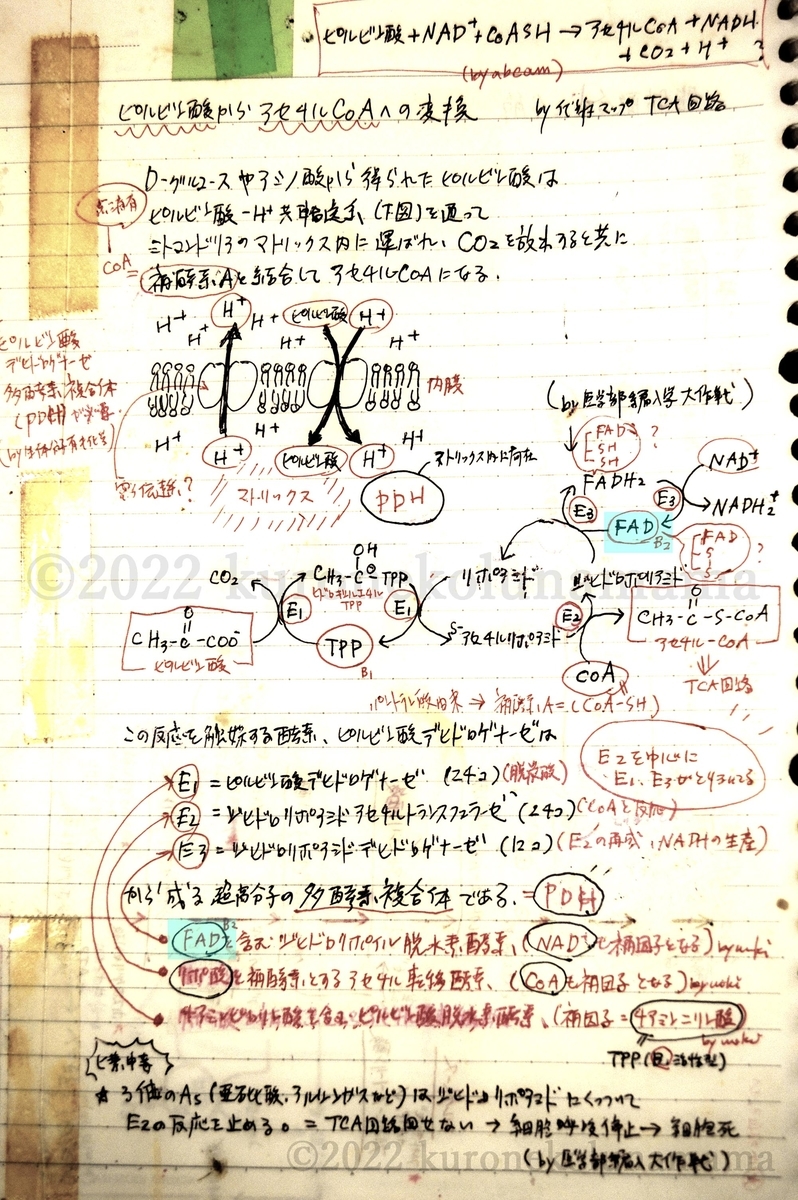 ピルビン酸+NAD⁺+CoASH→アセチルCoA+NADH
+CO2+H⁺ ?
(by abcam)
ピルビン酸から アセチルCoAへの変換 by 代謝マップ TCA回路
D-グルコースやアミノ酸から得られたピルビン酸は
ピルビン酸-H⁺共輸送系(下図)を通って
ミトコンドリアのマトリックス内に運ばれ、CO2を放出すると共に
補酵素Aと結合してアセチルCoAになる.
CoA
H⁺ H⁺ H⁺ H⁺ ピルビン酸 H⁺
H⁺ H⁺
ピルビン酸
デヒドロゲナーゼ
多酵素複合体
(PDH)が
内膜
H⁺ H⁺ H⁺
H⁺ ピルビン酸 H⁺
電子伝達?
マトリックス
PDH
マトリックス内に存在
(by 医学部編入学大作戦)
FAD ?
SH
SH
FADH2
NAD⁺
E3 E3
NADH2⁺
FAD
B2
FAD
S
S
?
©2022 kuronekolunamama
CO2
OH
CH3-C-TPP
TPP
リポアミド
ジヒドロリポアミド
E1 E1 E2
O
CH3-C-COO⁻
ピルビン酸
TPP
B1
S-アセチルリポアミド
O
CH3-C-S-CoA
アセチル-CoA
TCA回路
CoA
パントテン酸由来→補酵素A=(CoA-SH)
この反応を触媒する酵素、ピルビン酸デヒドロゲナーゼは
E2を中心に
E1、E3が
E1=ピルビン酸デヒドロゲナーゼ (24コ)(脱炭酸)
E2=ジヒドロリポアミドアセチルトランスフェラーゼ (24コ)(CoAと反応)
E3=ジヒドロリポアミドデヒドロゲナーゼ (12コ)(E2の再生、NADHの生産)
から成る超高分子の多酵素複合体である.=PDH
B2
FADを含むジヒドロリポイル脱水素酵素、(NAD⁺も補因子となる)
リポ酸を補酵素とするアセチル転移酵素、(CoAも補因子となる)
チアミンピロリン酸を含むピルビン酸脱水素酵素、(補因子=チアミン二リン酸)
TPP
ヒ素中毒
★3価のAs(亜ヒ酸、アルシンガスなど)はジヒドロリポアミドにくっついて
E2の反応を止める。=TCA回路回せない→細胞呼吸停止→細胞死
(by 医学部編入大作戦)
©2022 kuronekolunamama